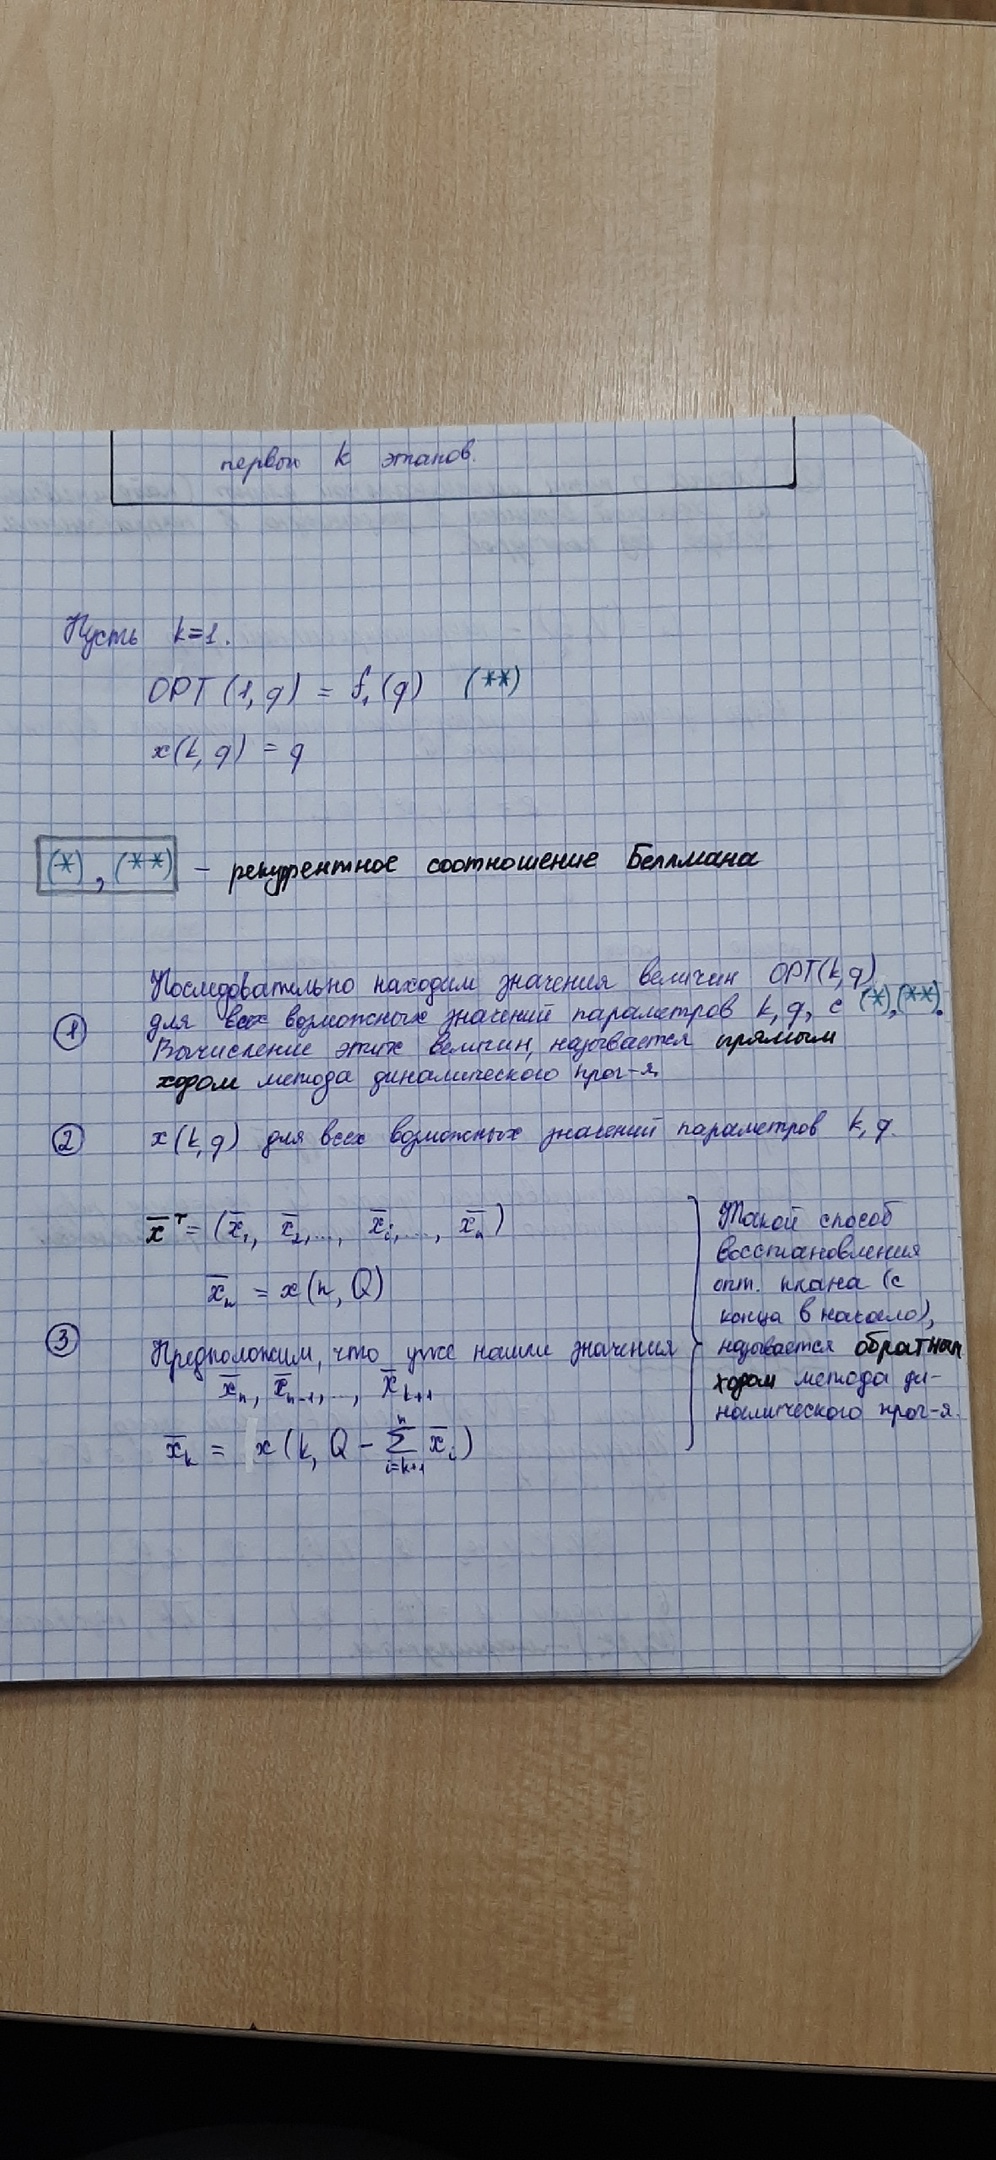 первых k этапов.
Пусть k=1.
OPT(1,q) = f₁(q) (**)
x(k,q) = q
(*), (**) – рекуррентное соотношение Беллмана
Последовательно находим значения величин OPT(k,q)
① для всех возможных значений параметров k, q, с (*),(**).
Вычисление этих величин, называется прямым
ходом метода динамического прог-я.
② x(k,q) для всех возможных значений параметров k, q.
x̄ᵀ = (x̄₁, x̄₂,..., x̄ᵢ,..., x̄ₙ)
x̄ₙ = x(n, Q)
③ Предположим, что уже нашли значения
x̄ₙ, x̄ₙ₋₁,..., x̄ₖ₊₁
x̄ₖ = x(k, Q – ∑ⁿᵢ₌ₖ₊₁ x̄ᵢ)
Такой способ
восстановления
опт. плана (с
конца в начало),
называется обратным
ходом метода ди-
намического прог-я.